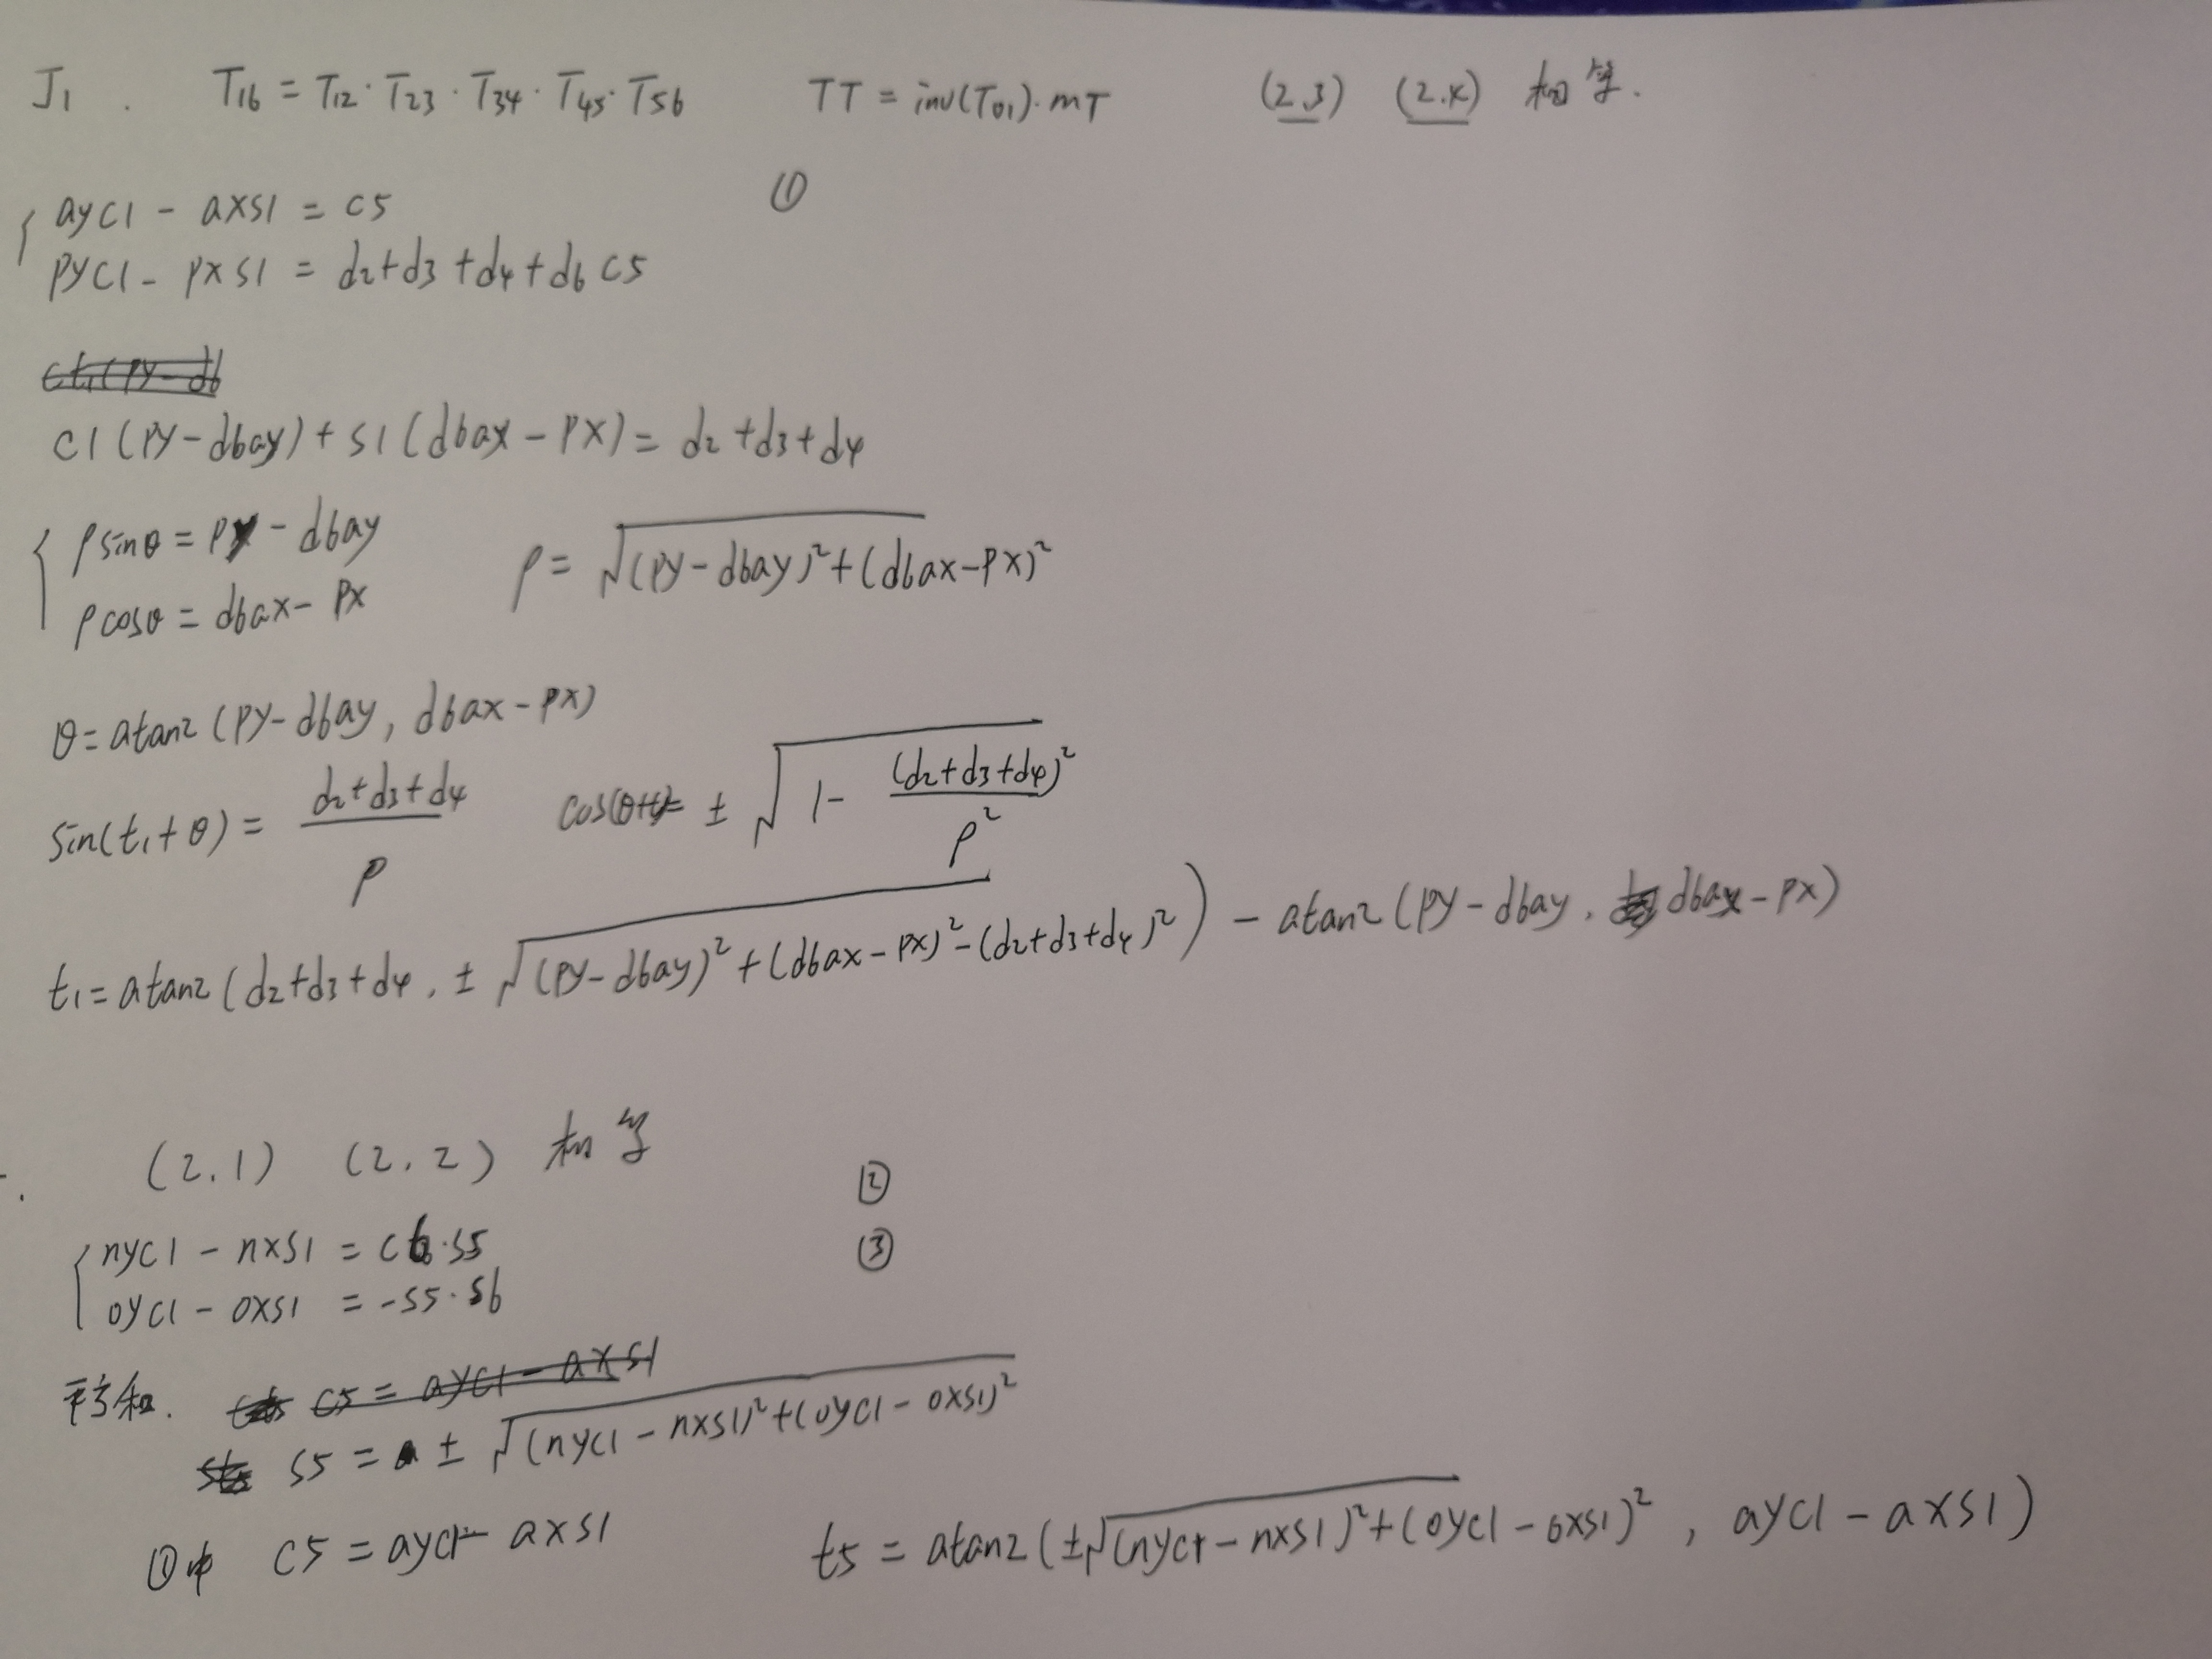 J1. T16 = T12 · T23 · T34 · T45 · T56 TT = inv(T01) · mT (2.3) (2.4) 相等.
①
ayc1 - axs1 = c5
pyc1 - pxs1 = d2+d3+d4+d6 c5
c1(py-d6ay)+s1(d6ax-px) = d2+d3+d4
ρsinθ = py - d6ay
ρcosθ = d6ax - px
ρ = √(py-d6ay)²+(d6ax-px)²
θ = atan2(py-d6ay, d6ax-px)
sin(t1+θ) = (d2+d3+d4)/ρ cos(θ+t1)= ± √1-(d2+d3+d4)²/ρ²
t1 = atan2(d2+d3+d4, ± √(py-d6ay)²+(d6ax-px)²-(d2+d3+d4)²) - atan2(py-d6ay, d6ax-px)
(2.1) (2.2) 相等
②
③
nyc1 - nxs1 = c6·s5
oyc1 - oxs1 = -s5·s6
平方和. c5 = ayc1 - axs1
s5 = ± √(nyc1-nxs1)²+(oyc1-oxs1)²
①中 c5 = ayc1 - axs1 t5 = atan2(±√(nyc1-nxs1)²+(oyc1-oxs1)², ayc1-axs1)